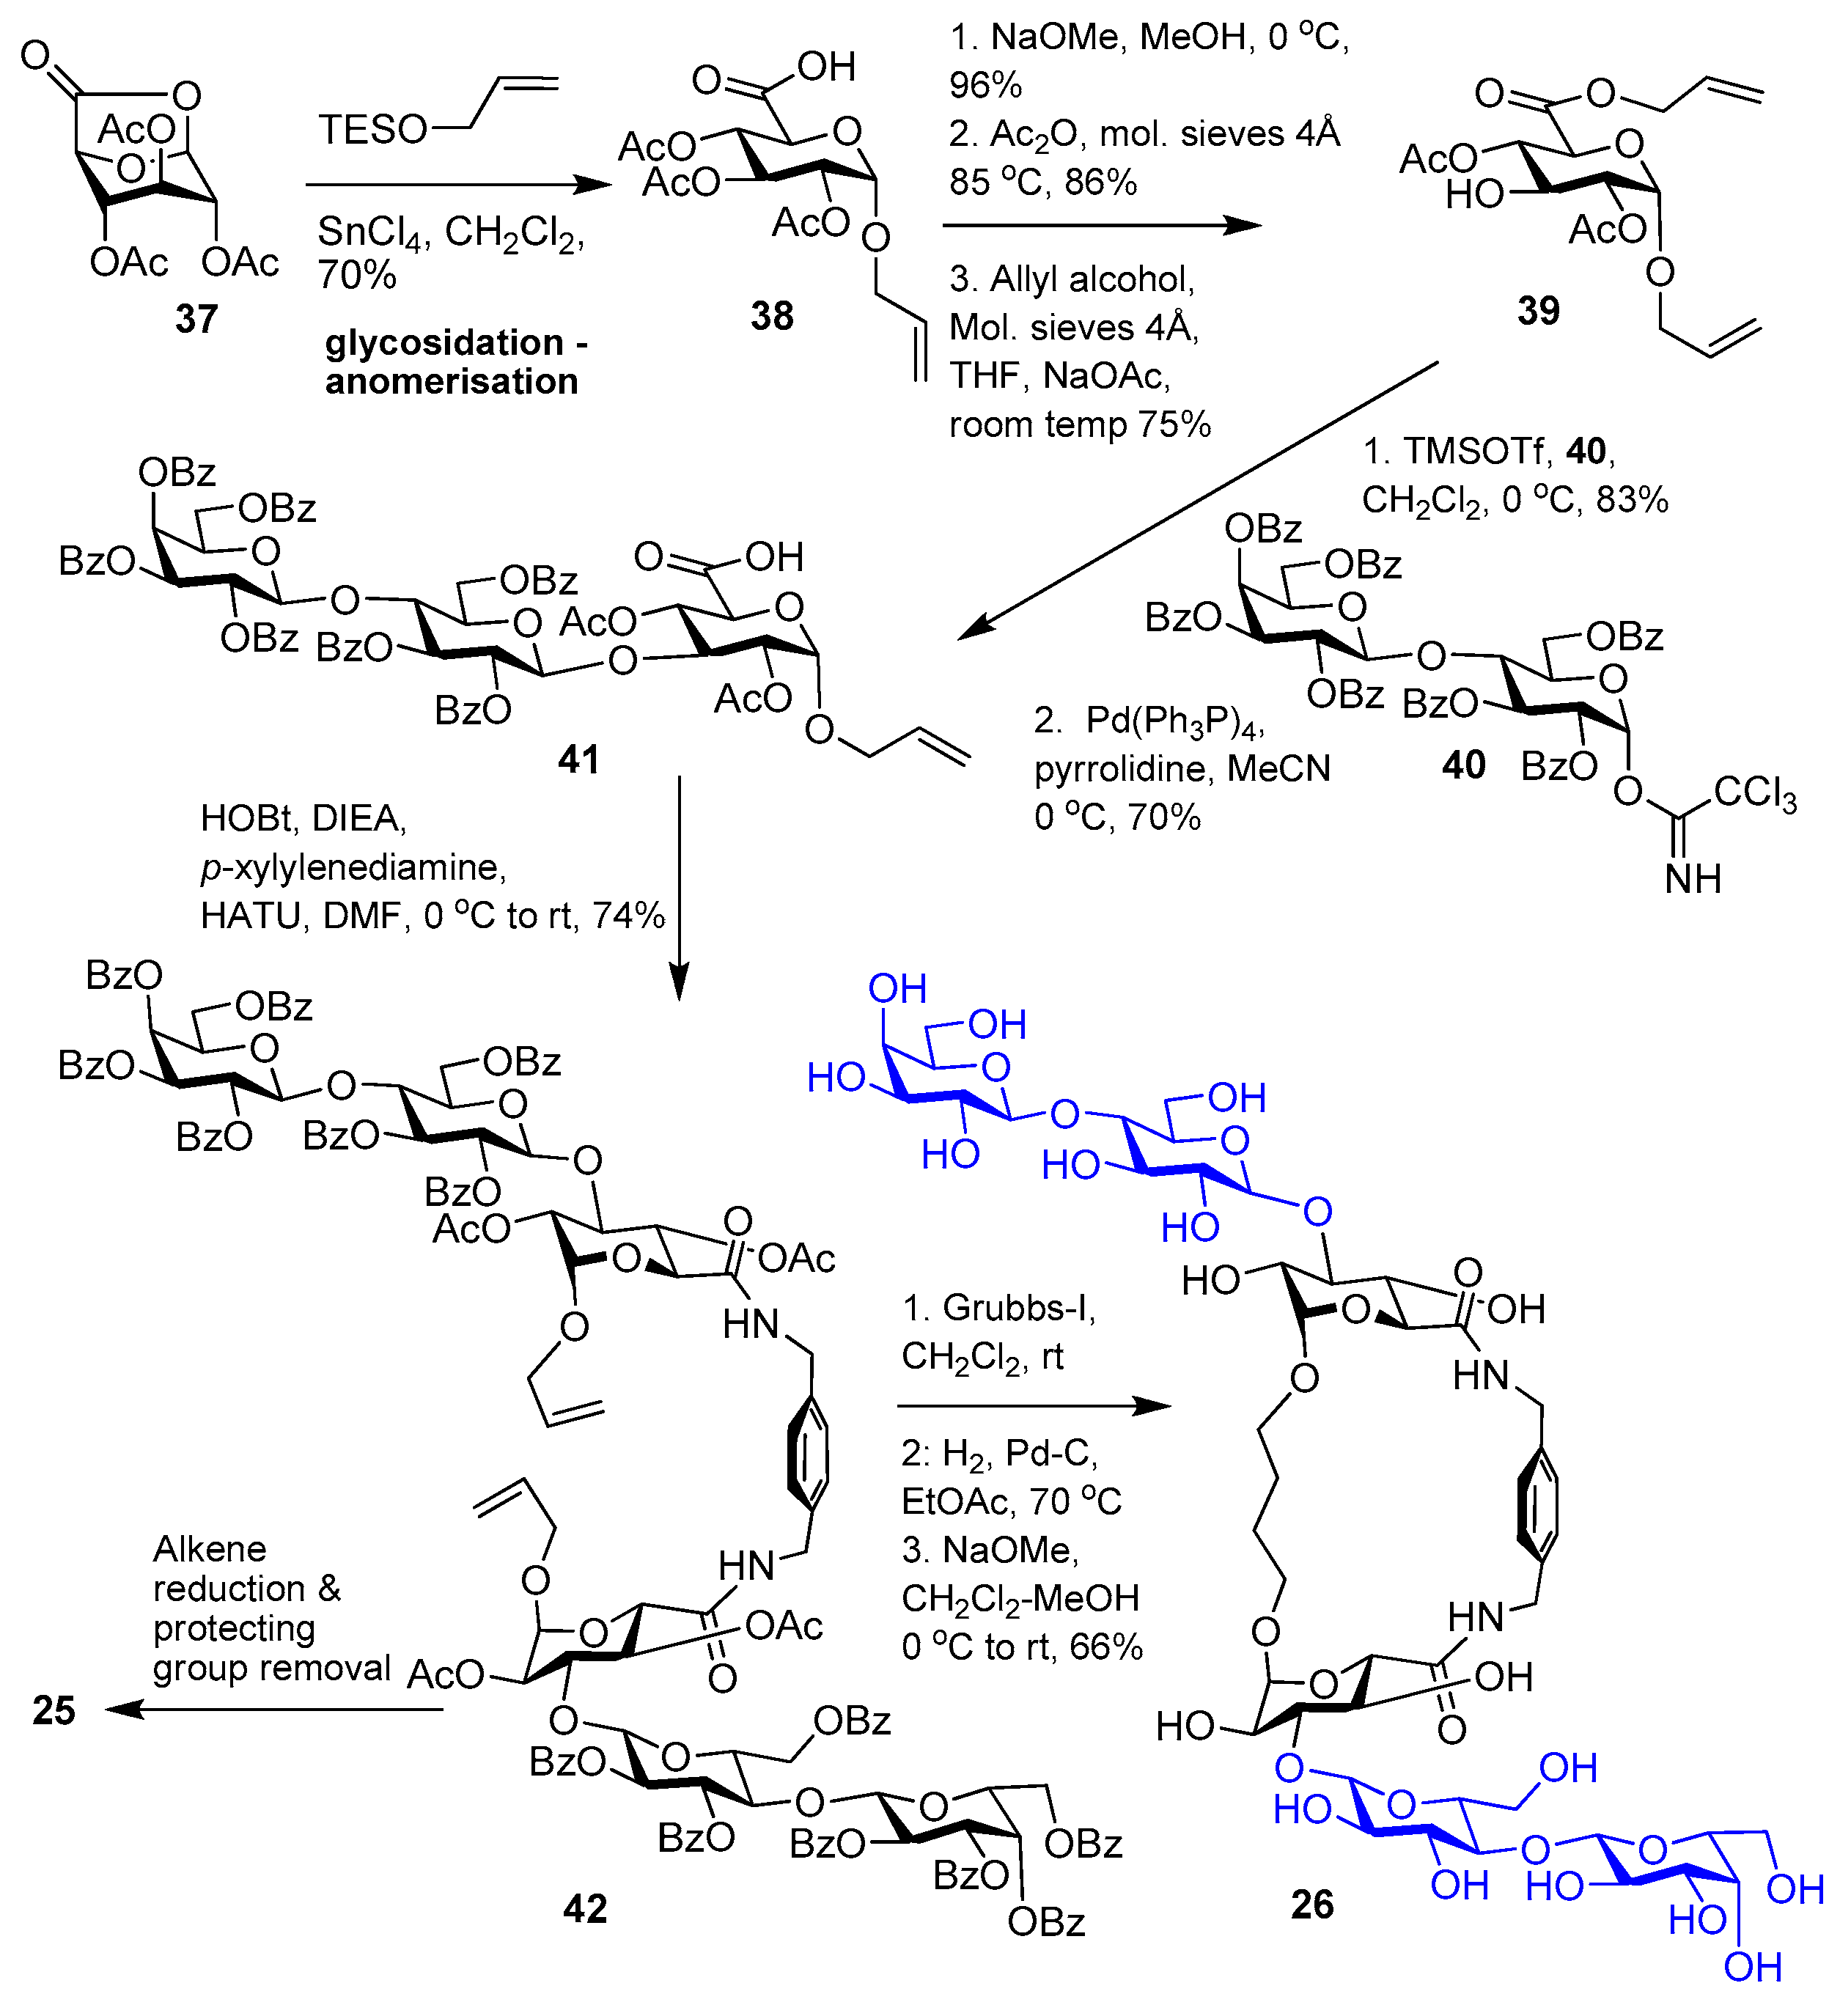 O
O
AcO
O
OAc
OAc
37
TESO
SnCl4, CH2Cl2,
70%
glycosidation -
anomerisation
O
OH
AcO
AcO
O
AcO
O
38
1. NaOMe, MeOH, 0 oC,
96%
2. Ac2O, mol. sieves 4Å
85 oC, 86%
3. Allyl alcohol,
Mol. sieves 4Å,
THF, NaOAc,
room temp 75%
O
O
AcO
HO
O
AcO
O
39
1. TMSOTf, 40,
CH2Cl2, 0 oC, 83%
OBz
OBz
BzO
O
OBz
O
OBz
BzO
O
BzO
O
CCl3
NH
40
2. Pd(Ph3P)4,
pyrrolidine, MeCN
0 oC, 70%
OBz
OBz
BzO
O
OBz
O
OBz
BzO
O
BzO
O
O
OH
AcO
O
AcO
O
41
HOBt, DIEA,
p-xylylenediamine,
HATU, DMF, 0 oC to rt, 74%
BzO
OBz
BzO
O
BzO
O
OBz
BzO
O
BzO
O
AcO
O
O
OAc
HN
O
O
HN
O
OAc
AcO
O
O
OBz
BzO
O
BzO
O
O
BzO
OBz
BzO
OBz
42
Alkene
reduction &
protecting
group removal
25
1. Grubbs-I,
CH2Cl2, rt
2: H2, Pd-C,
EtOAc, 70 oC
3. NaOMe,
CH2Cl2-MeOH
0 oC to rt, 66%
OH
OH
HO
O
HO
O
OH
HO
O
HO
O
HO
O
O
OH
HN
O
O
HN
O
OH
HO
O
O
OH
HO
O
OH
O
O
HO
OH
HO
OH
26